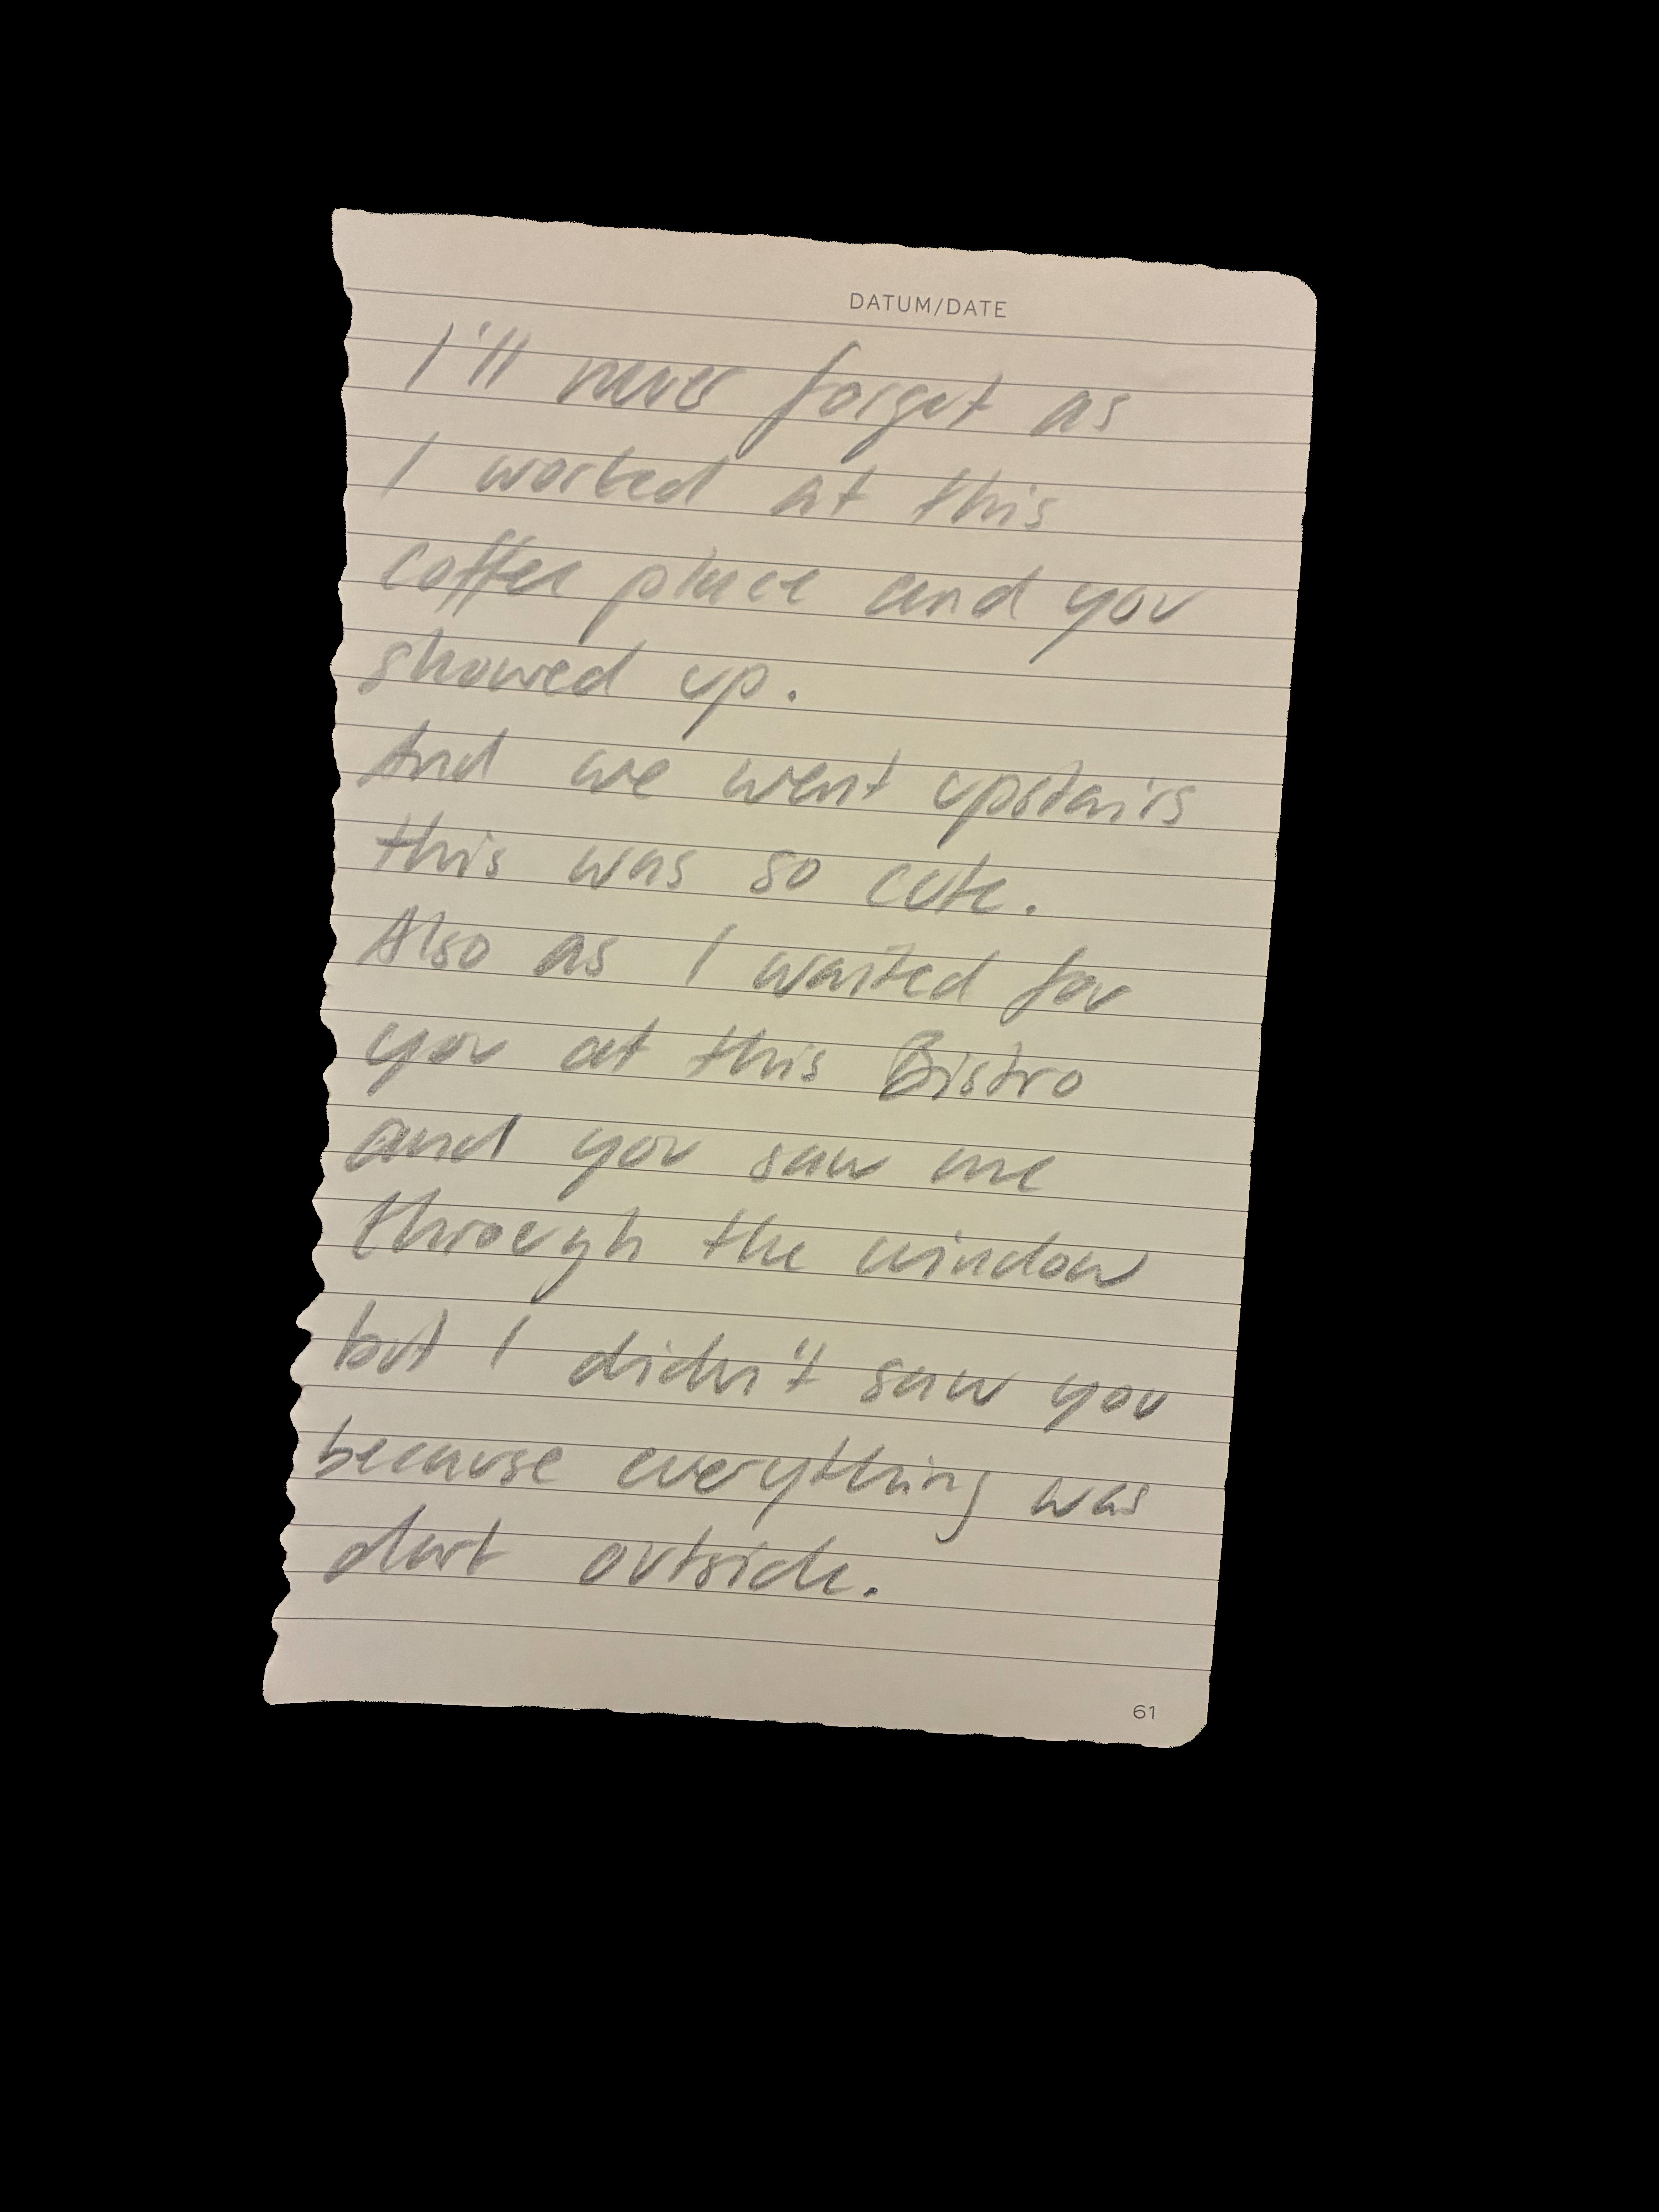 DATUM/DATE
I'll never forget as
I worked at this
coffee place and you
showed up.
And we went upstairs
this was so cute.
Also as I waited for
you at this Bistro
and you saw me
through the window
but I didn't saw you
because everything was
dark outside.
61